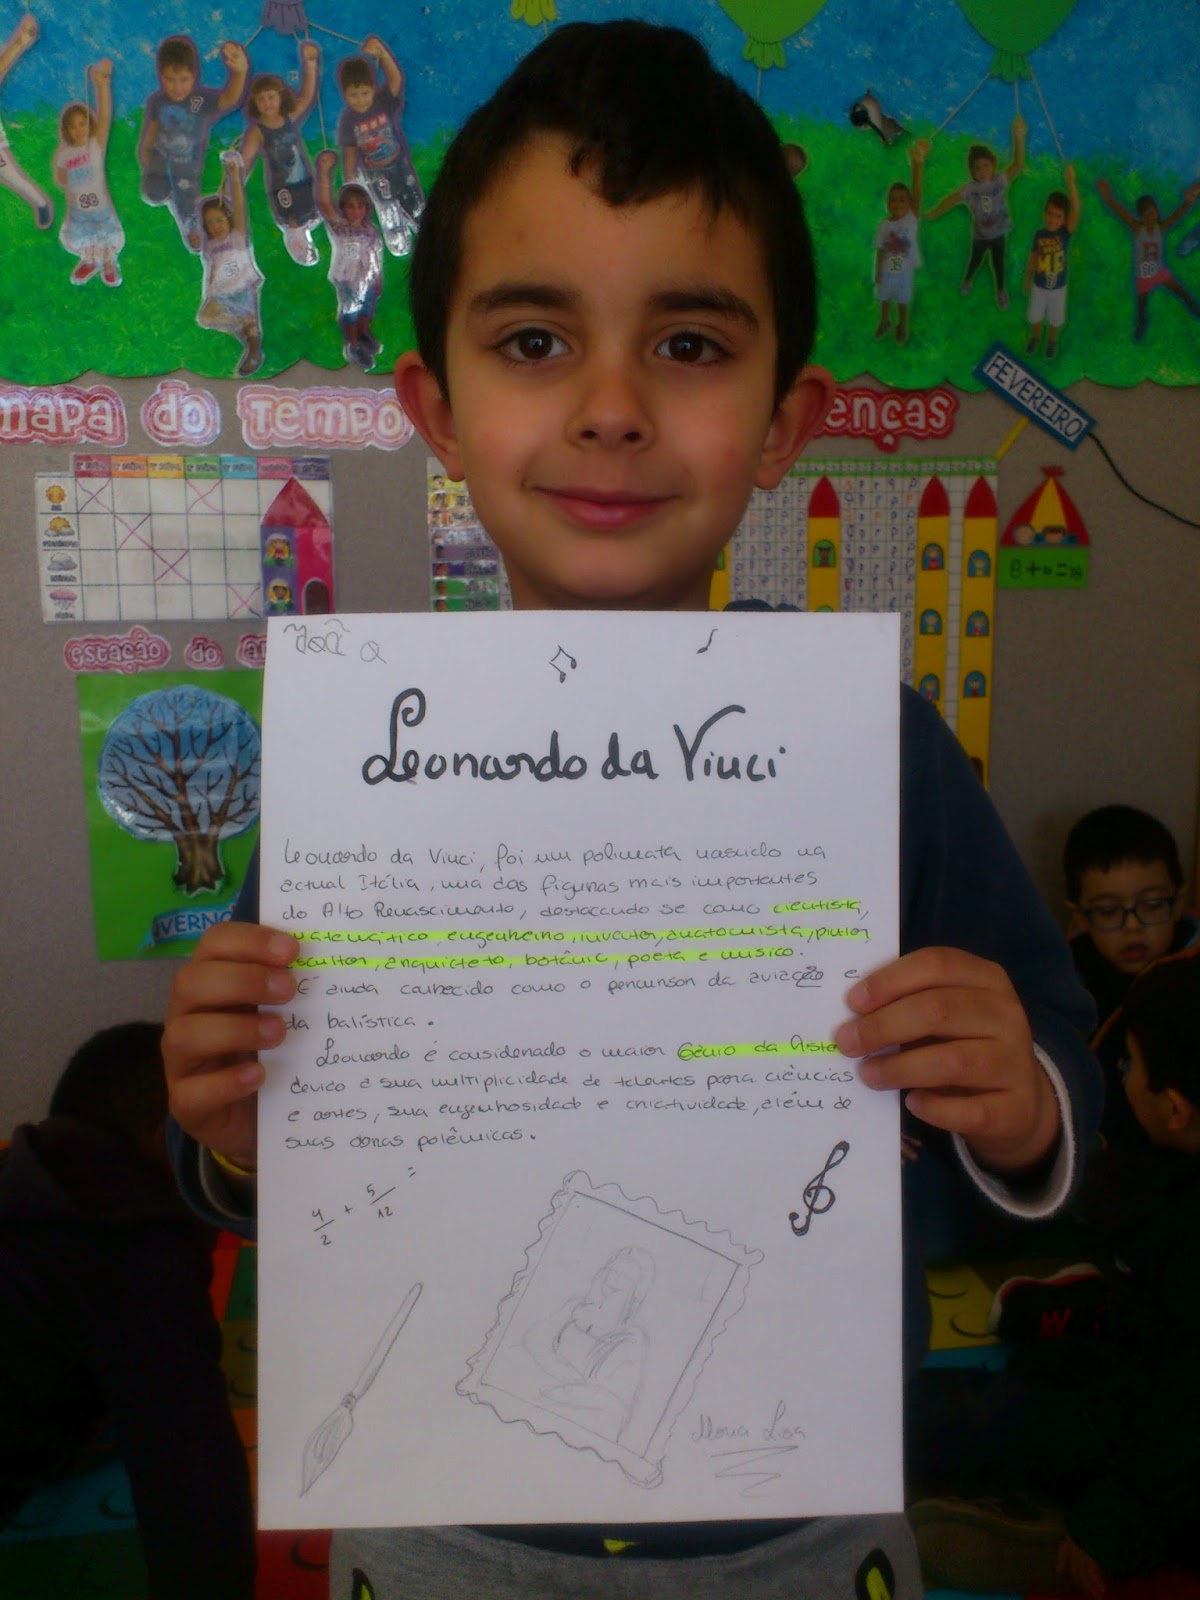 FEVEREIRO
mapa do Tempo
enças
8+8=16
estação do an
INVERNO
João Q
Leonardo da Vinci
Leonardo da Vinci, foi um polimata nascido na
actual Itália, uma das figuras mais importantes
do Alto Renascimento, destacando se como cientista,
matemático, engenheiro, inventor, anatomista, pintor,
escultor, arquicteto, botânic, poeta e musico.
É ainda conhecido como o percursor da aviação e
da balística.
Leonardo é considerado o maior Génio da Histo
devido a sua multiplicidade de talentos para ciências
e artes, sua engenhosidade e criatividade, além de
suas obras polêmicas.
4/2 + 5/12 =
Mona Lisa